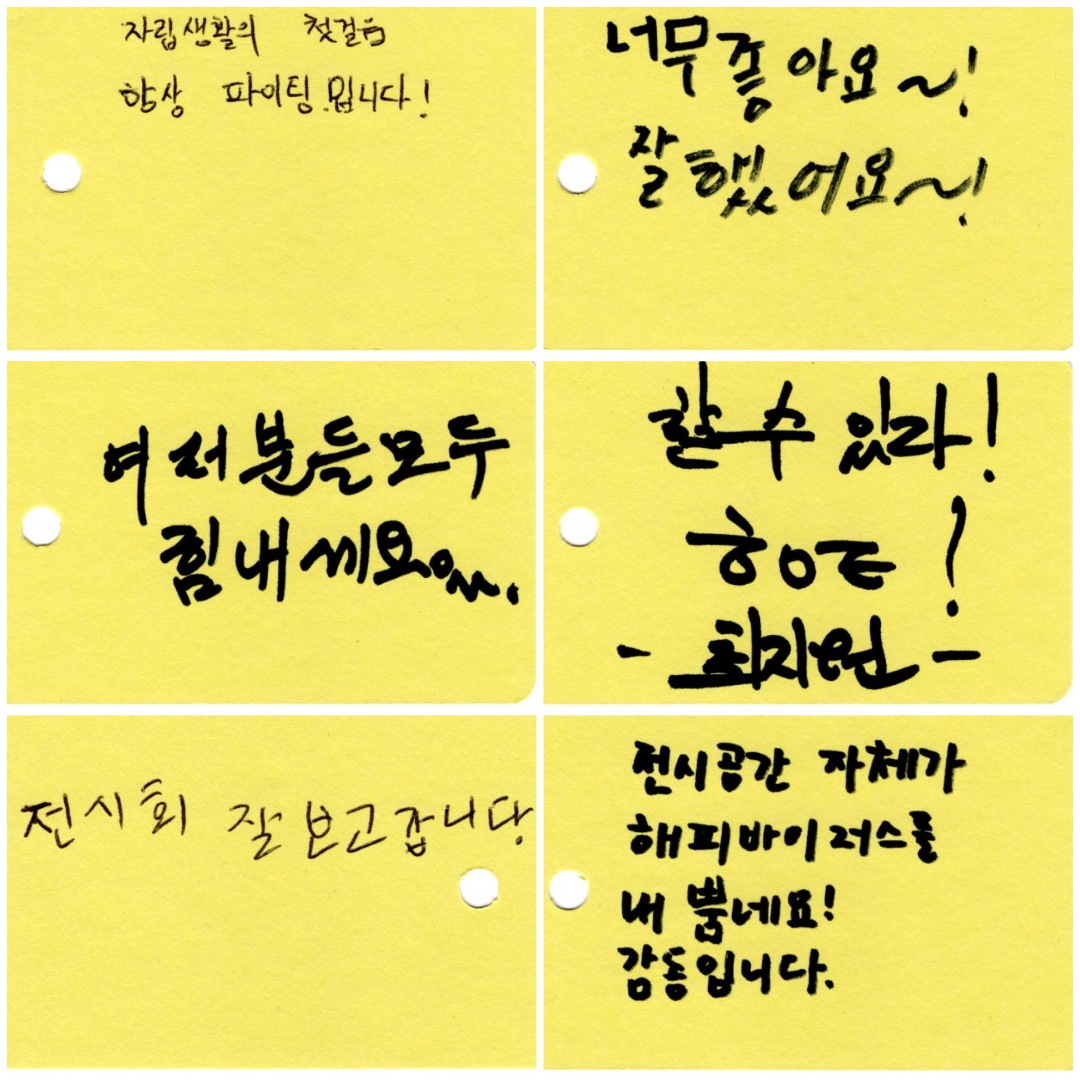 자립생활의 첫걸음
항상 파이팅 입니다!
너무 좋아요~!
잘했어요~!
여러분들모두
힘내세요
할수있다!
최지원
전시회 잘보고갑니당
전시공간 자체가
해피바이러스를
내뿜네요!
감동입니다.